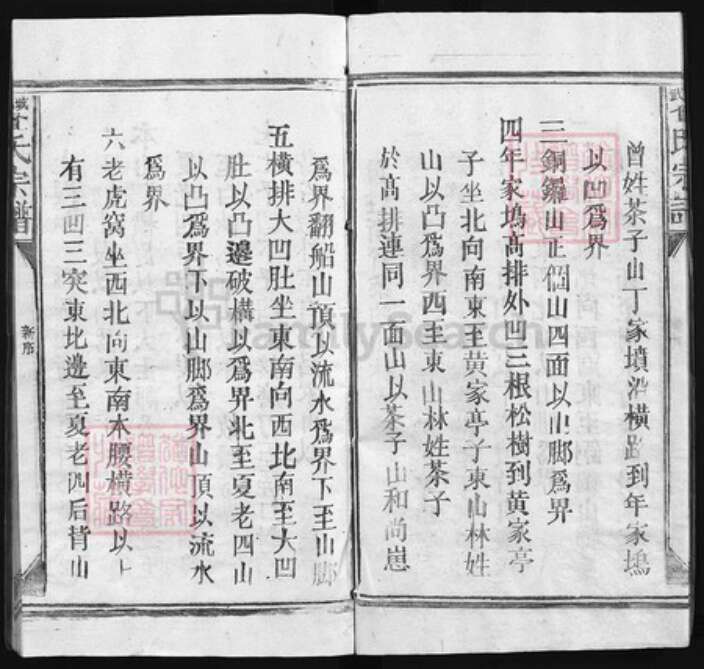 曾姓茶子山丁家墳沿橫路到年家塢
以凹爲界
三銅鑼山正個山四面以山脚爲界
四年家塢高排外凹三根松樹到黄家亭
子坐北向南東至黄家亭子東山林姓
山以凸爲界西至東山林姓茶子
於高排連同一面山以茶子山和尚崽
爲界翻船山頂以流水爲界下至山脚
五橫排大凹肚坐東南向西北南至大凹
肚以凸邊破橫以爲界北至夏老四山
以凸爲界下以山脚爲界山頂以流水
爲界
六老虎窩坐西北向東南本腰橫路以上
有三凹三突東北邊至夏老四后背山
氏宗譜
新序
氏宗譜
FamilySearch